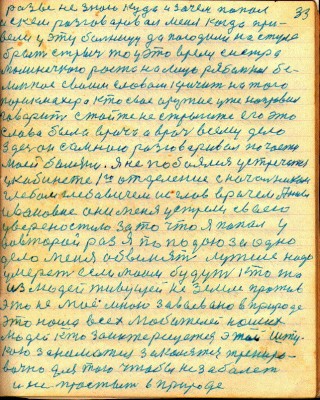 разве не знаю куда и зачем попал 33
и с кем разговаривал меня когда при-
вели у эту больницу да посадили на стуле
брать стрич то у это время сестра
маленького роста на лицо рябая
своими словами кричит на того
парикмахера кто свое оружие уже
говорит стойте не стригите его это
слава была врач а врач всему дело
здесь он со мною разговаривал по части
моей болезни. Я не побоялся устречаться
у кабинете 1го отделение с начальником
Глебам Глебавичем и глав врачем
Ивановне они меня устрели своего
увереностию за то что я попал у
вавторой раз я по подою за одно
дело меня обвинят лучше надо
умереть если такии будут кто то
из людей живущей на Земле против
это не моё мною завоевано в природе
это наша всех любителей наших
людей кто заинтересуется этой шту-
кою заниматся закалятся трениро-
вачка для того чтобы не заболеть
и не простыть в природе